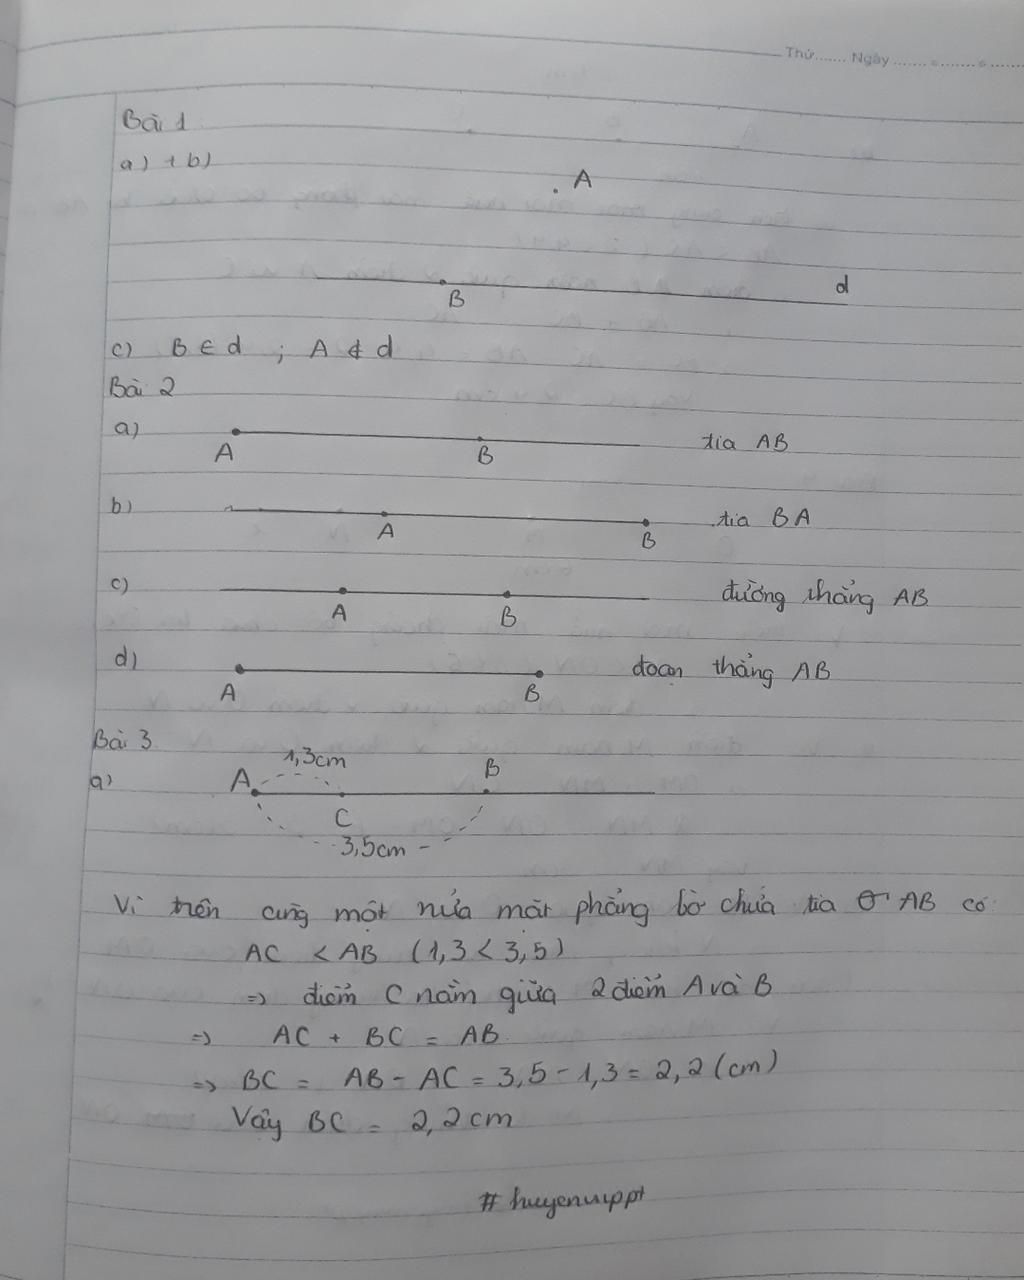 Thứ....... Ngày ....... ....... .......
Bài 1
a) + b)
A
B
d
c) B ∈ d ; A ∉ d
Bài 2
a) A B tia AB
b) A B tia BA
c) A B đường thẳng AB
d) A B đoạn thẳng AB
Bài 3
1,3cm
a) A B
C
3,5cm
Vì trên cùng một nửa mặt phẳng bờ chứa tia AB có
AC < AB (1,3 < 3,5)
=> điểm C nằm giữa 2 điểm A và B
=> AC + BC = AB
=> BC = AB - AC = 3,5 - 1,3 = 2,2 (cm)
Vậy BC = 2,2 cm